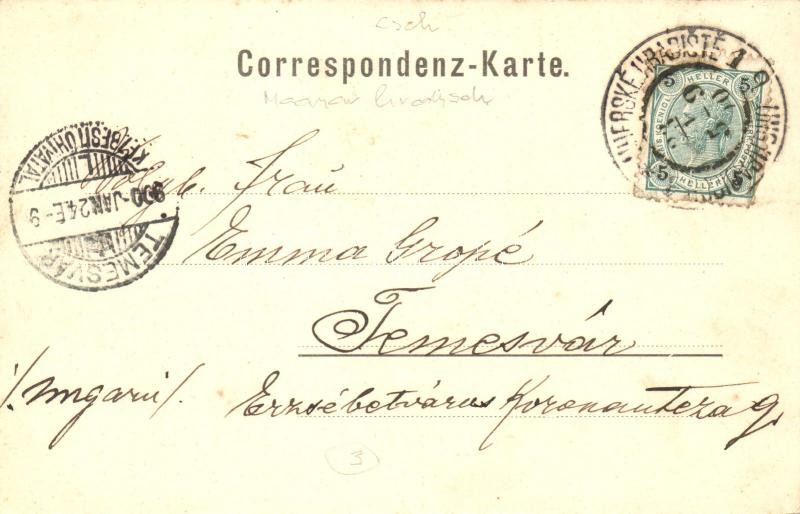 csch
Correspondenz-Karte.
Magyar Hradisch
UHERSKÉ HRADIŠTĚ
5 HELLER 5
5 HELLER 5
KÉZBESITŐ HIVATAL
900 JAN. 24. E. 9
TEMESVÁR
Wolgb. Frau
Emma Gropé
Temesvár
/: Ungarn /.
Erzsébetváros Koronautcza 9.
3